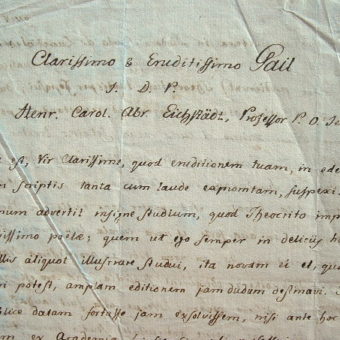 Clarissimo & Eruditissimo Gail
S. D. P.
Henr. Carol. Abr Eichstädt, Professor P. O. Je
est, Vir Clarissime, quod eruditionem tuam, in ede
scriptis tanta cum laude expromtam, suspexi
num advertit insigne studium, quod Theocrito imp
issimo poëtae; quem ut ego semper in deliciis h
llis aliquot illustrare studui, ita novam ei et, qu
ri potest, amplam editionem jam dudum destinavi.
lice datam fortasse jam exsolvissem, nisi ante hor
ex Academia